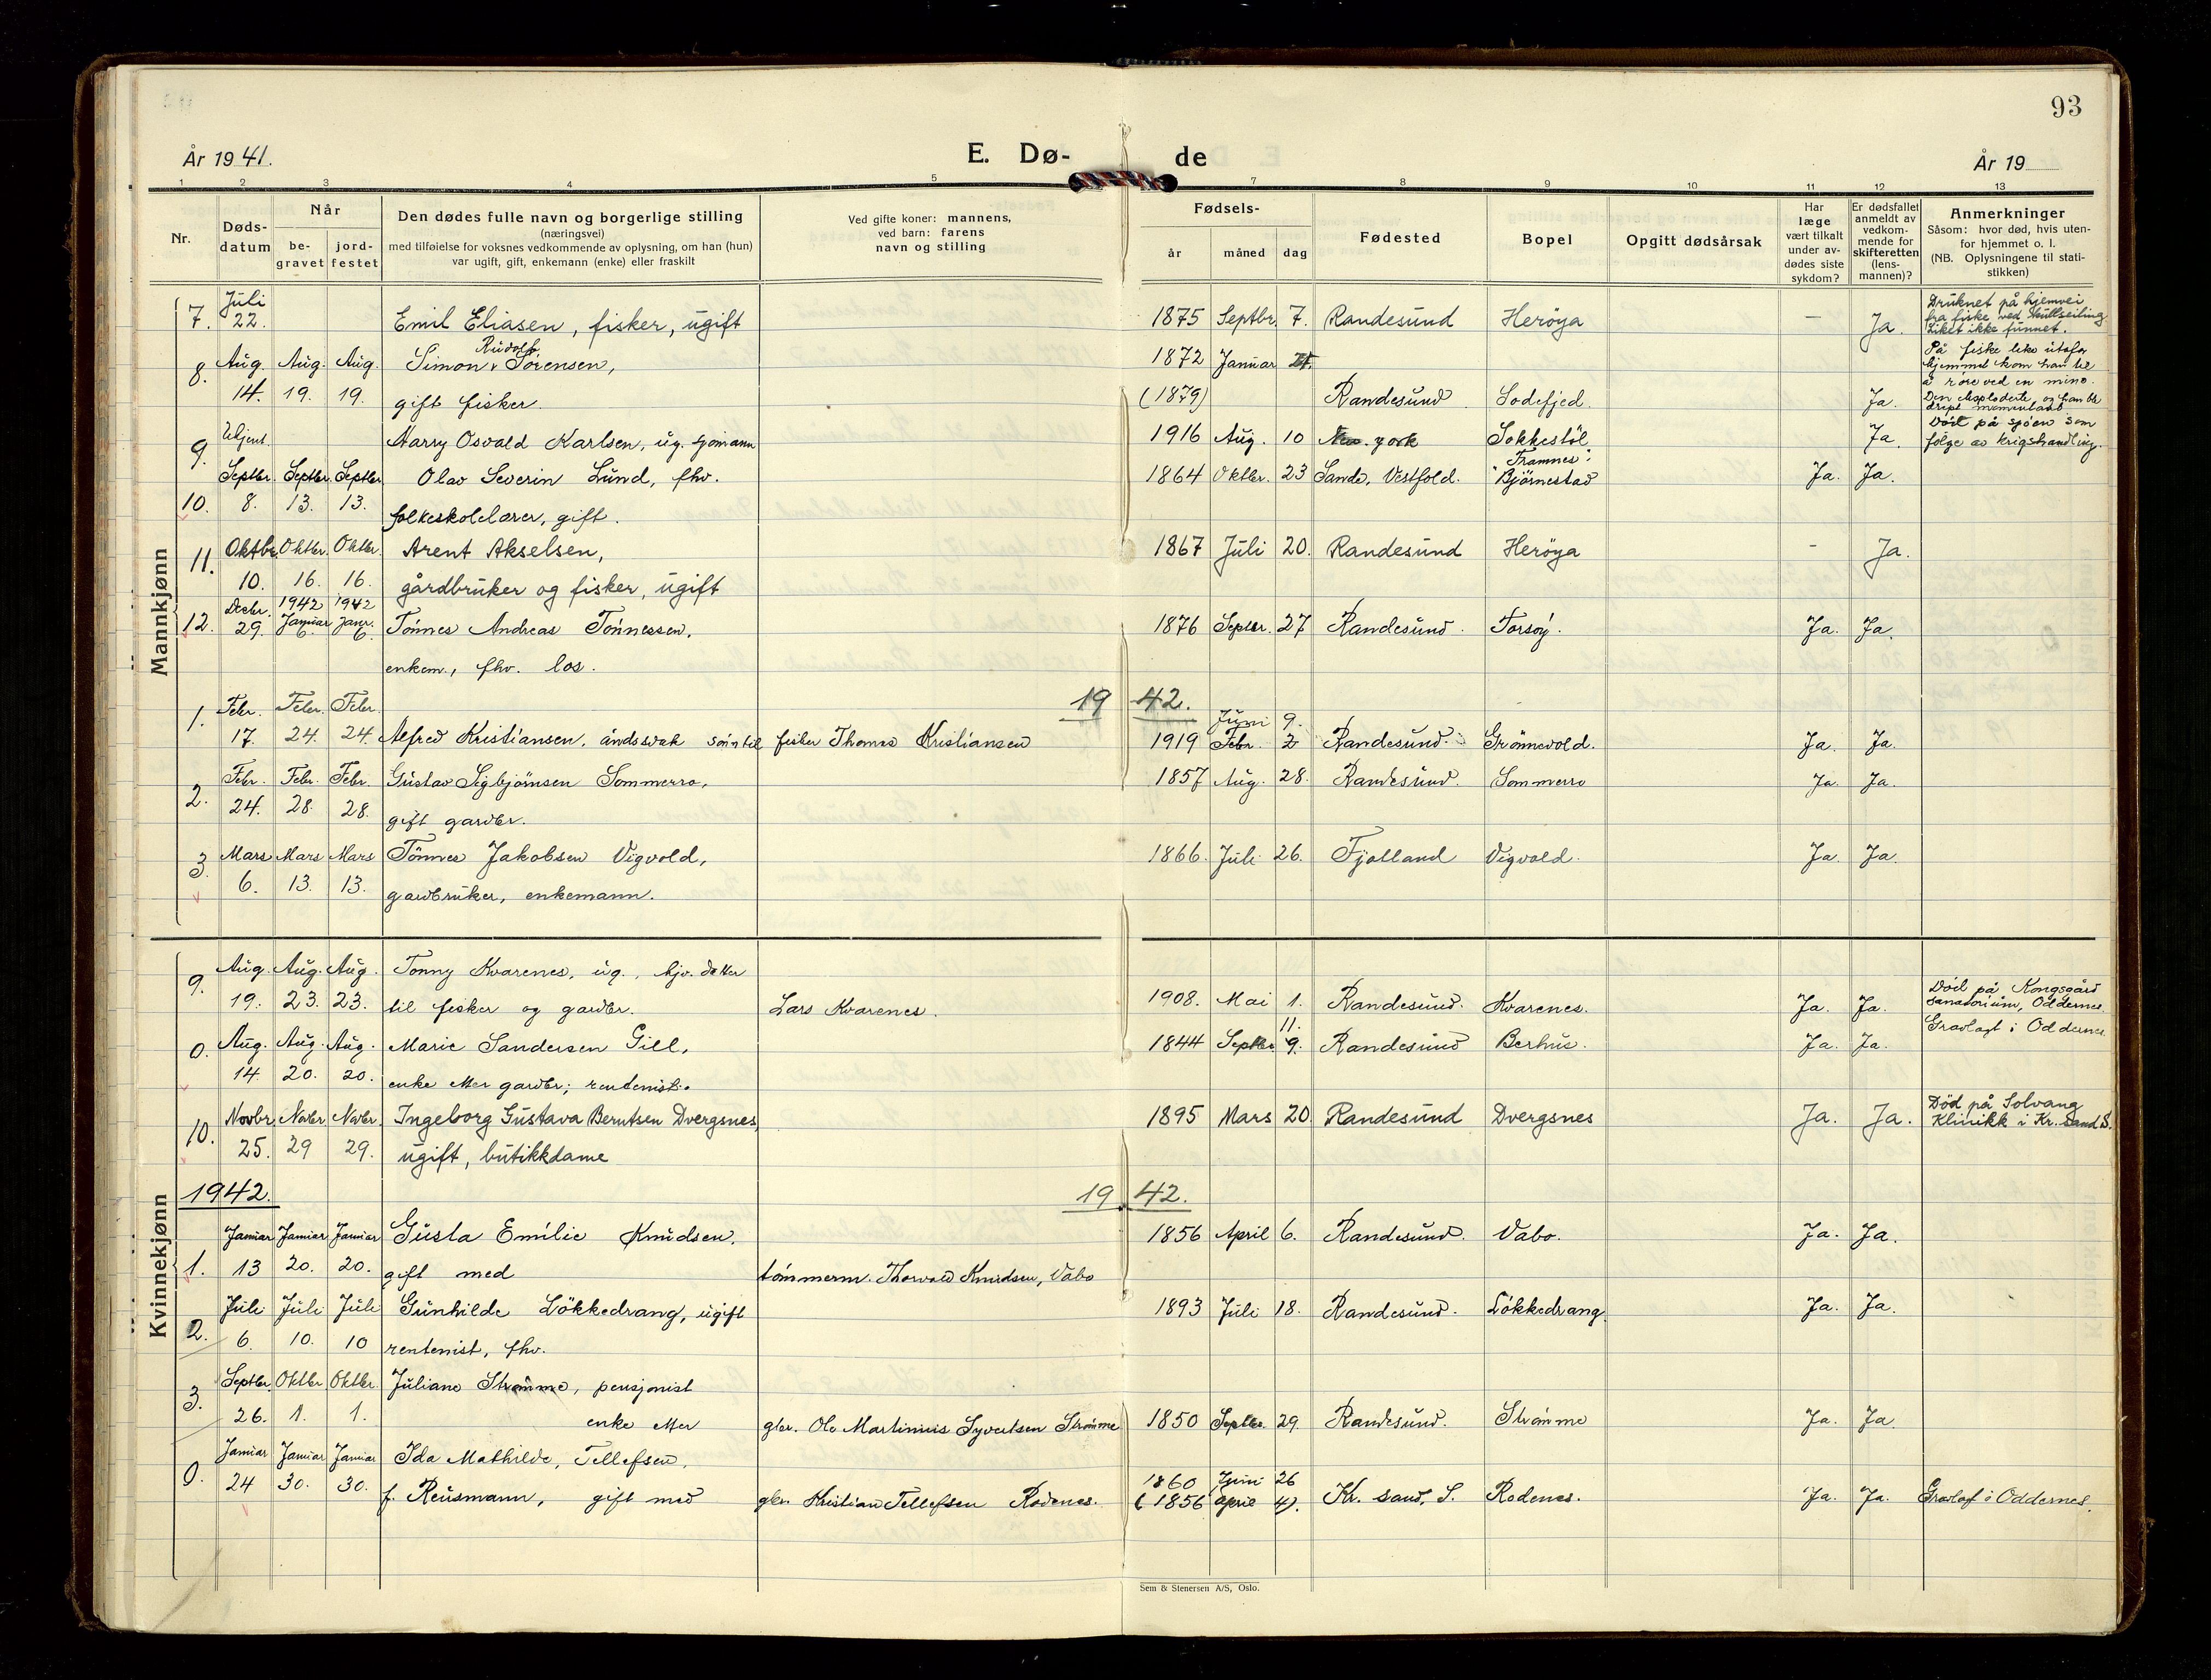 93
År 1941.
E. Dø-
de
År 19
1 2 3 4 5 7 8 9 10 11 12 13
Nr.
Døds-
datum
Når
be-
gravet
jord-
festet
Den dødes fulle navn og borgerlige stilling
(næringsvei)
med tilføielse for voksnes vedkommende av oplysning, om han (hun)
var ugift, gift, enkemann (enke) eller fraskilt
Ved gifte koner: mannens,
ved barn: farens
navn og stilling
Fødsels-
år måned dag
Fødested
Bopel
Opgitt dødsårsak
Har
læge
vært tilkalt
under av-
dødes siste
sykdom?
Er dødsfallet
anmeldt av
vedkom-
mende for
skifteretten
(lens-
mannen)?
Anmerkninger
Såsom: hvor død, hvis uten-
for hjemmet o. l.
(NB. Oplysningene til stati-
stikken)
Mannkjønn
7. Juli 22. Emil Eliasen, fisker, ugift 1875 Septbr. 7. Randesund Herøya — Ja.
Druknet på hjemvei
fra fiske ved Skullseiling
Liket ikke funnet.
8. Aug. Aug. Aug. Simon Rudolf Sørensen, 1872 Januar
14. 19. 19. gift fisker. (1879) Randesund Sodefjed. Ja.
På fiske like utafor
hjemmet kom han til
å røre ved en mine.
Den eksploderte, og han ble
drept momentant.
9. Ukjent. Harry Osvald Karlsen, ug. sjömann 1916 Aug. 10 New. york Sokkestöl Ja.
Död på sjöen som
fölge av krigshandling.
Septbr. Septbr. Septbr. Olav Severin Lund, fhv. 1864 Oktbr. 23 Sande, Vestfold. "Framnes". Björnestad Ja. Ja.
10. 8. 13. 13. folkeskolelærer, gift.
11. Oktbr. Oktbr. Oktbr. Arent Akselsen, 1867 Juli 20. Randesund Herøya - Ja.
10. 16. 16. gårdbruker og fisker, ugift
Desbr. 1942 1942
12. 29. Januar 6. Janr. 6. Tönnes Andreas Tönnessen, 1876 Septbr. 27 Randesund. Torsöy. Ja. Ja.
enkem., fhv. los.
19 42.
1. Febr. Febr. Febr. Juni 9.
17. 24. 24. Alfred Kristiansen, åndssvak sön til fisker Thomas Kristiansen 1919 Febr. 2 Randesund. Grönnevold. Ja. Ja.
2. Febr. Febr. Febr. Gustav Sigbjörnsen Sommerro, 1857 Aug. 28. Randesund. Sommerro Ja. Ja.
24. 28. 28. gift gardbr.
3. Mars Mars Mars Tönnes Jakobsen Vigvold, 1866. Juli 26. Fjotland Vigvold. Ja. Ja.
6. 13. 13. gardbruker, enkemann.
Kvinnekjønn
9. Aug. Aug. Aug. Tonny Kvarenes, ug., hjv. datter
19. 23. 23. til fisker og gardbr. Lars Kvarenes. 1908. Mai 1. Randesund. Kvarenes. Ja. Ja.
Död på Kongsgård
sanatorium, Oddernes.
0. Aug. Aug. Aug. Marie Sandersen Gill, 1844 Septbr. 11. 9. Randesund Berhus. Ja. Ja. Gravlagt i Oddernes
14. 20. 20. enke etter gardbr; rentenist.
10. Novbr. Novbr. Novbr. Ingeborg Gustava Berntsen Dvergsnes, 1895 Mars 20 Randesund Dvergsnes Ja. Ja.
25. 29 29. ugift, butikkdame
Død på Solvang
Klinikk i Kr.sand S.
1942. 19 42.
Januar Januar Januar Gusta Emilie Knudsen, 1856 April 6. Randesund. Vabo. Ja. Ja.
1. 13 20. 20. gift med tömmerm. Thorvald Knudsen, Vabo
Juli Juli Juli Gunhilde Lökkedrang, ugift 1893 Juli 18. Randesund. Lökkedrang. Ja. Ja.
2. 6. 10. 10 rentenist, fhv.
3. Septbr. Oktbr. Oktbr. Juliane Strömme, pensjonist
26. 1. 1. enke etter gbr. Ole Martinius Syvertsen Strömme 1850 Septbr. 29. Randesund. Strömme Ja. Ja
0. Januar Januar Januar Ida Mathilde, Tellefsen, 1860 Juni 26
24 30. 30. f. Reusmann, gift med gbr. Kristian Tellefsen Rodenes. (1856 April 4). Kr. sand, S. Rodenes. Ja. Ja. Gravlagt i Oddernes.
Sem & Stenersen A/S, Oslo.